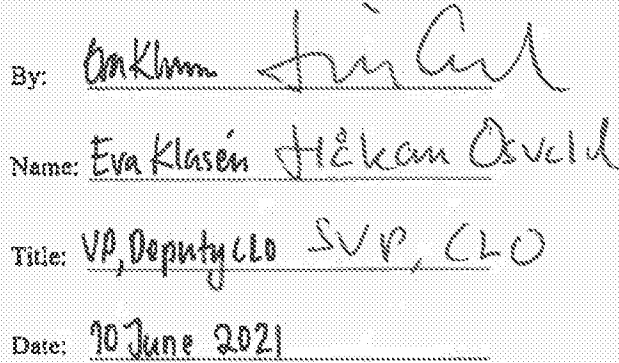 By:
Name: Eva Klasén Håkan Osvald
Title: VP, Deputy CLO SVP, CLO
Date: 10 June 2021